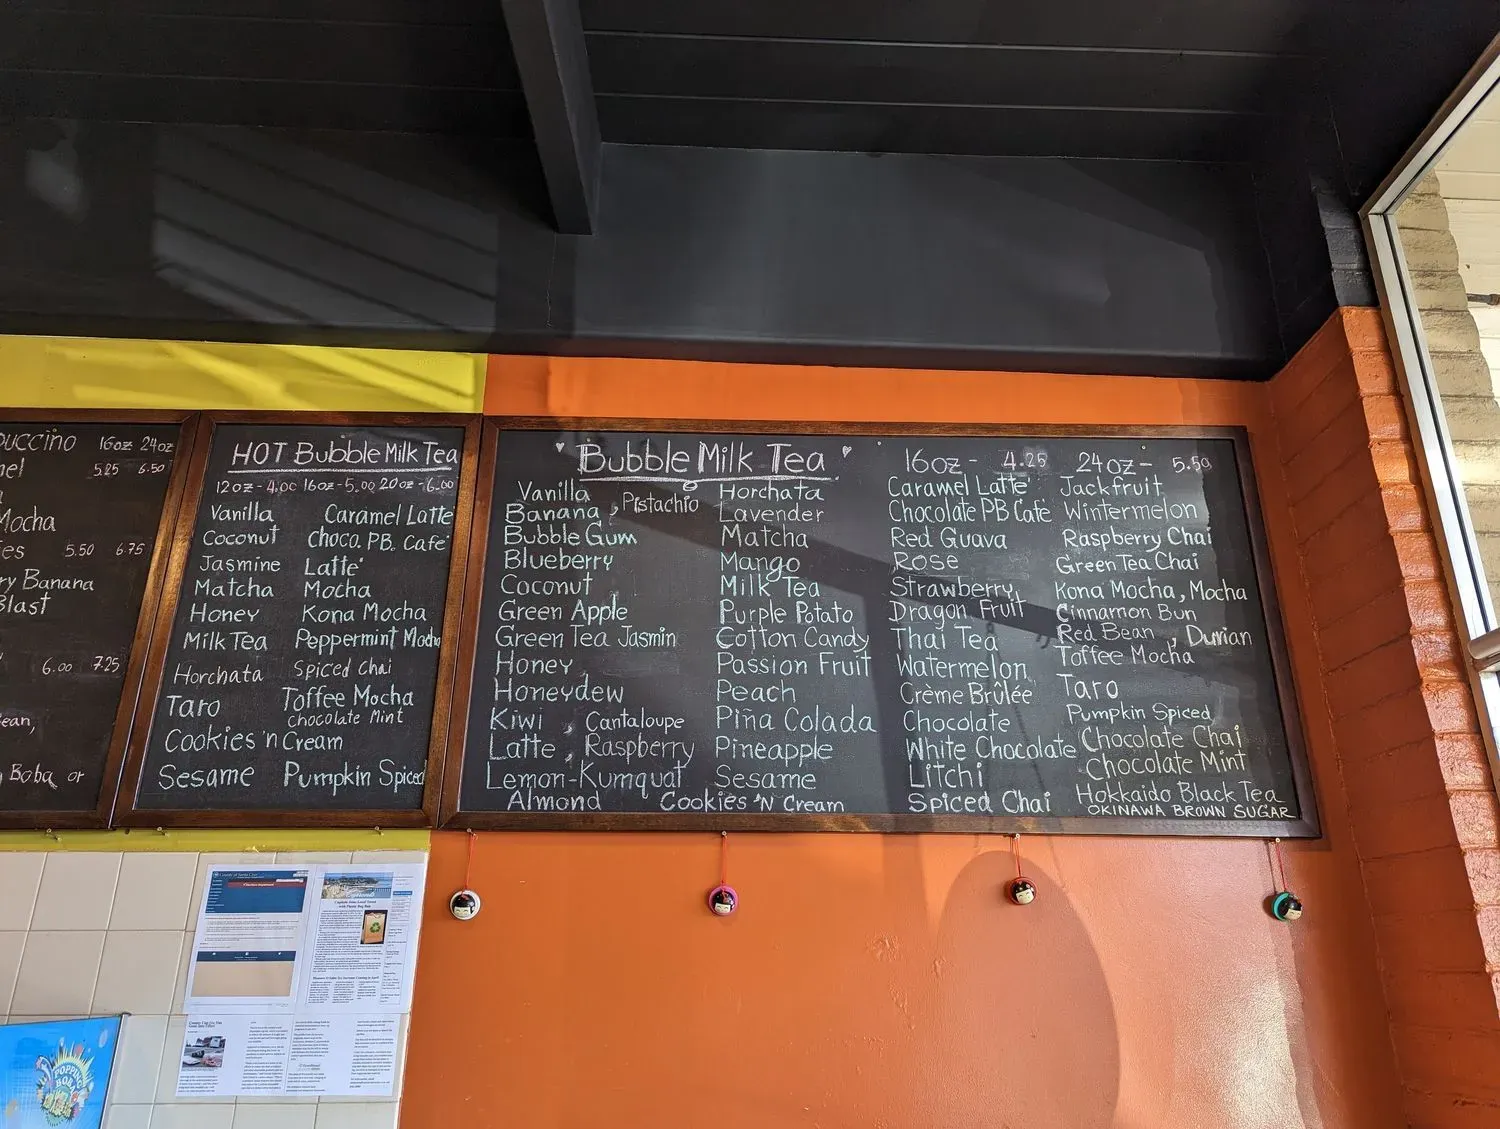 puccino 16oz 24oz
5.25 6.50
Mocha
5.50 6.75
Banana
Blast
6.00 7.25
Boba or
HOT Bubble Milk Tea
12oz-4.00 16oz-5.00 20oz-6.00
Vanilla Caramel Latte'
Coconut Choco. P.B. Cafe'
Jasmine Latte'
Matcha Mocha
Honey Kona Mocha
Milk Tea Peppermint Mocha
Horchata Spiced Chai
Taro Toffee Mocha
Chocolate Mint
Cookies 'n Cream
Sesame Pumpkin Spiced
"Bubble Milk Tea"
16oz - 4.25 24oz - 5.50
Vanilla
Banana , Pistachio
Bubble Gum
Blueberry
Coconut
Green Apple
Green Tea Jasmin
Honey
Honeydew
Kiwi , Cantaloupe
Latte , Raspberry
Lemon-Kumquat
Almond
Horchata
Lavender
Matcha
Mango
Milk Tea
Purple Potato
Cotton Candy
Passion Fruit
Peach
Piña Colada
Pineapple
Sesame
Cookies 'N Cream
Caramel Latte'
Chocolate PB Cafe'
Red Guava
Rose
Strawberry
Dragon Fruit
Thai Tea
Watermelon
Crème Brûlée
Chocolate
White Chocolate
Litchi
Spiced Chai
Jackfruit
Wintermelon
Raspberry Chai
Green Tea Chai
Kona Mocha, Mocha
Cinnamon Bun
Red Bean , Durian
Toffee Mocha
Taro
Pumpkin Spiced
Chocolate Chai
Chocolate Mint
Hokkaido Black Tea
OKINAWA BROWN SUGAR
County of Santa Cruz
POPPING
BOBA